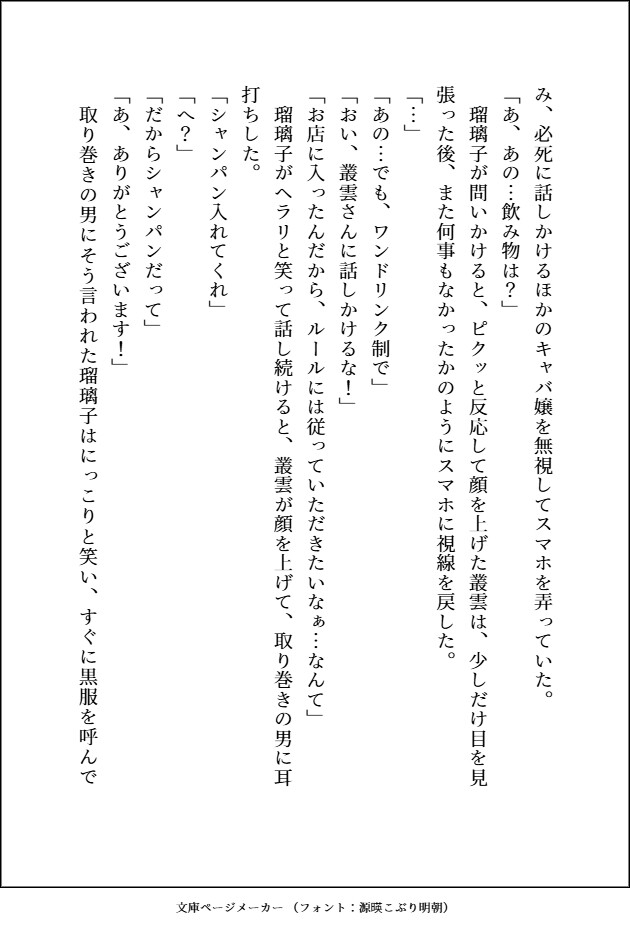 み、必死に話しかけるほかのキャバ嬢を無視してスマホを弄っていた。
「あ、あの…飲み物は？」
瑠璃子が問いかけると、ピクッと反応して顔を上げた叢雲は、少しだけ目を見
張った後、また何事もなかったかのようにスマホに視線を戻した。
「…」
「あの…でも、ワンドリンク制で」
「おい、叢雲さんに話しかけるな！」
「お店に入ったんだから、ルールには従っていただきたいなぁ…なんて」
瑠璃子がヘラリと笑って話し続けると、叢雲が顔を上げて、取り巻きの男に耳
打ちした。
「シャンパン入れてくれ」
「へ？」
「だからシャンパンだって」
「あ、ありがとうございます！」
取り巻きの男にそう言われた瑠璃子はにっこりと笑い、すぐに黒服を呼んで
文庫ページメーカー（フォント：源暎こぶり明朝）